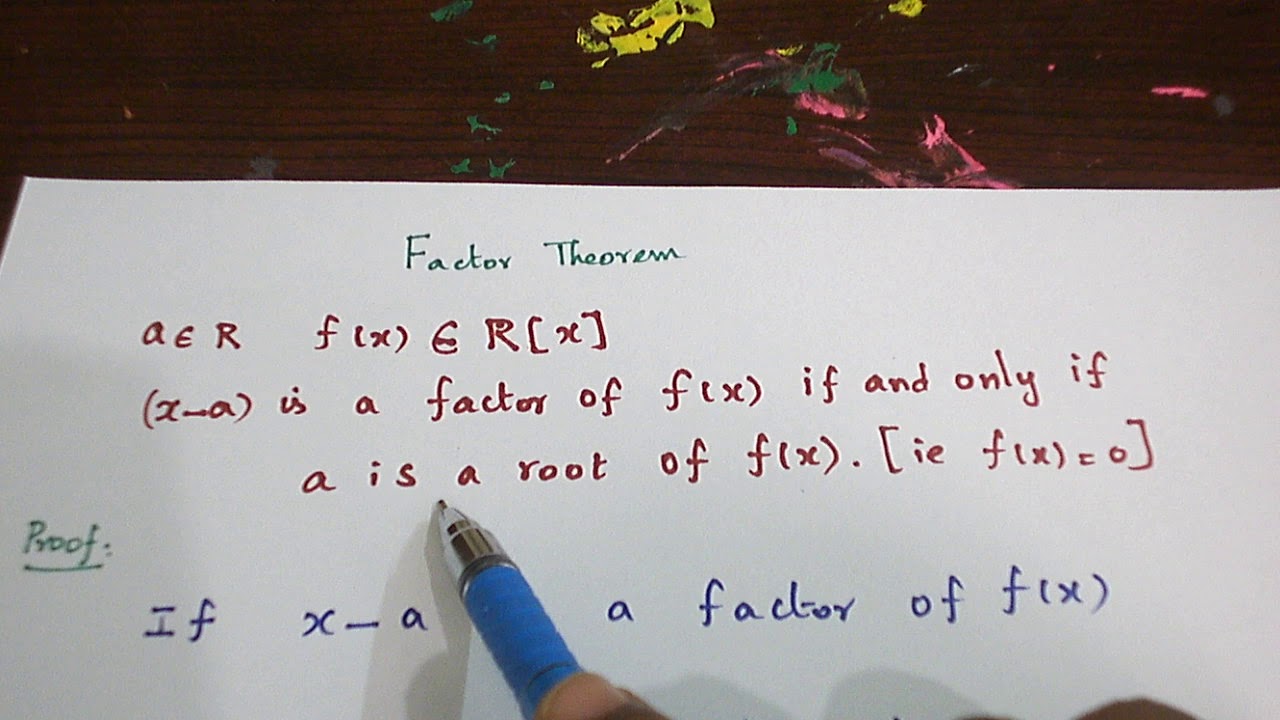 Factor Theorem
a ∈ R f(x) ∈ R[x]
(x-a) is a factor of f(x) if and only if
a is a root of f(x). [ie f(x) = 0]
Proof:
If x - a a factor of f(x)